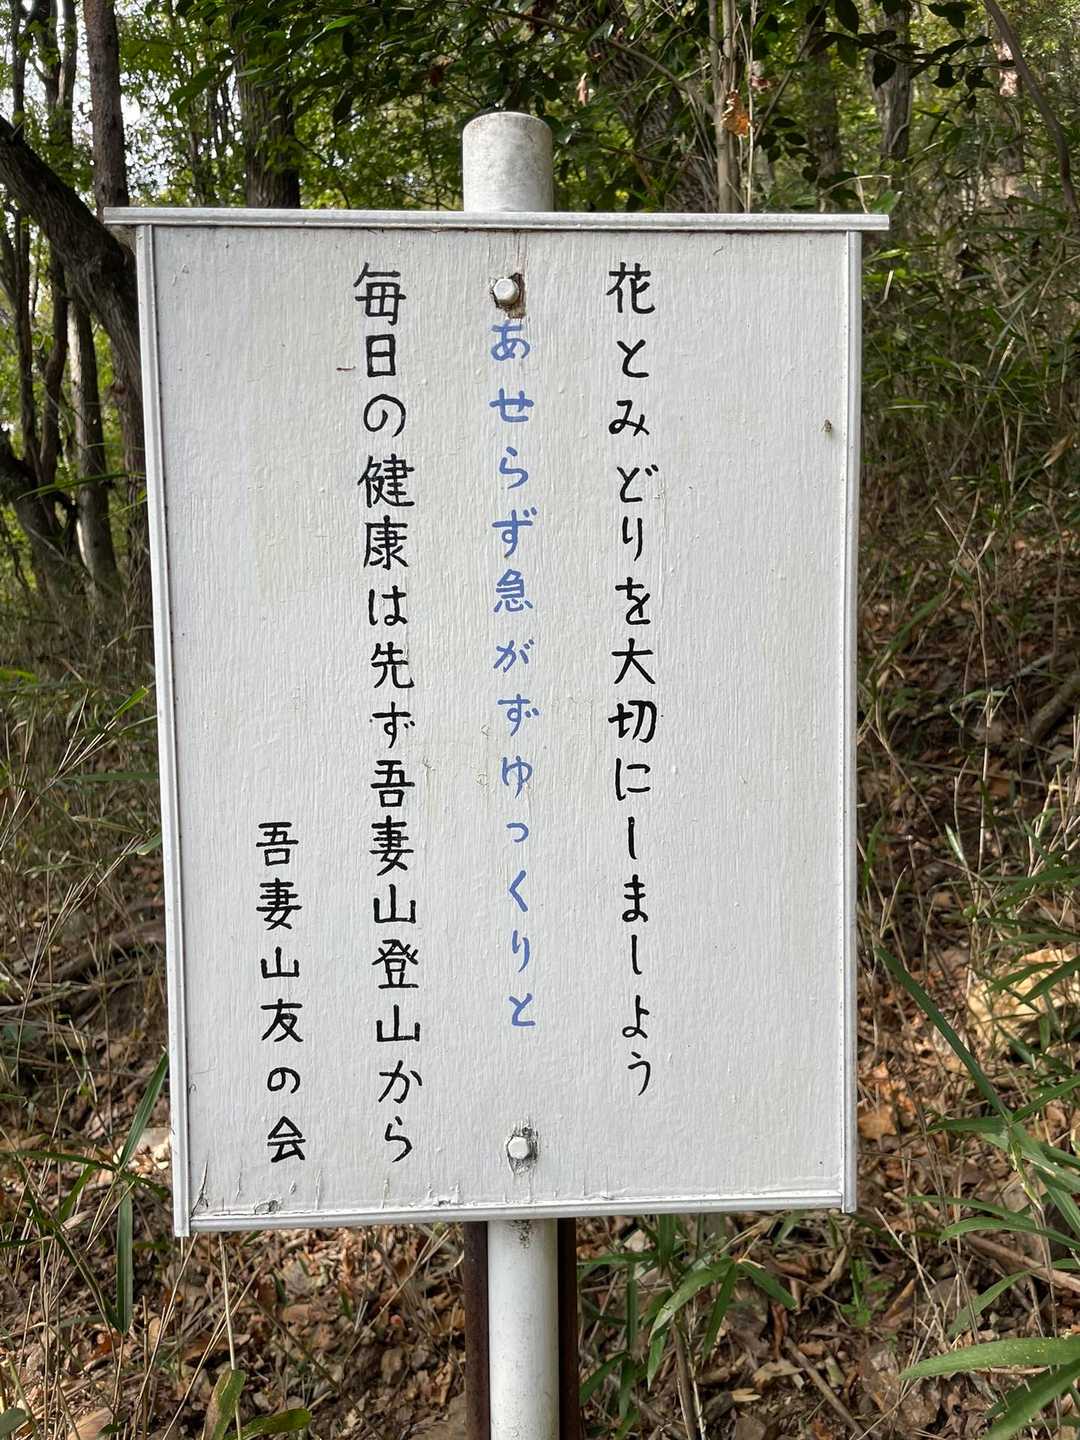 花とみどりを大切にしましょう
あせらず急がずゆっくりと
毎日の健康は先ず吾妻山登山から
吾妻山友の会